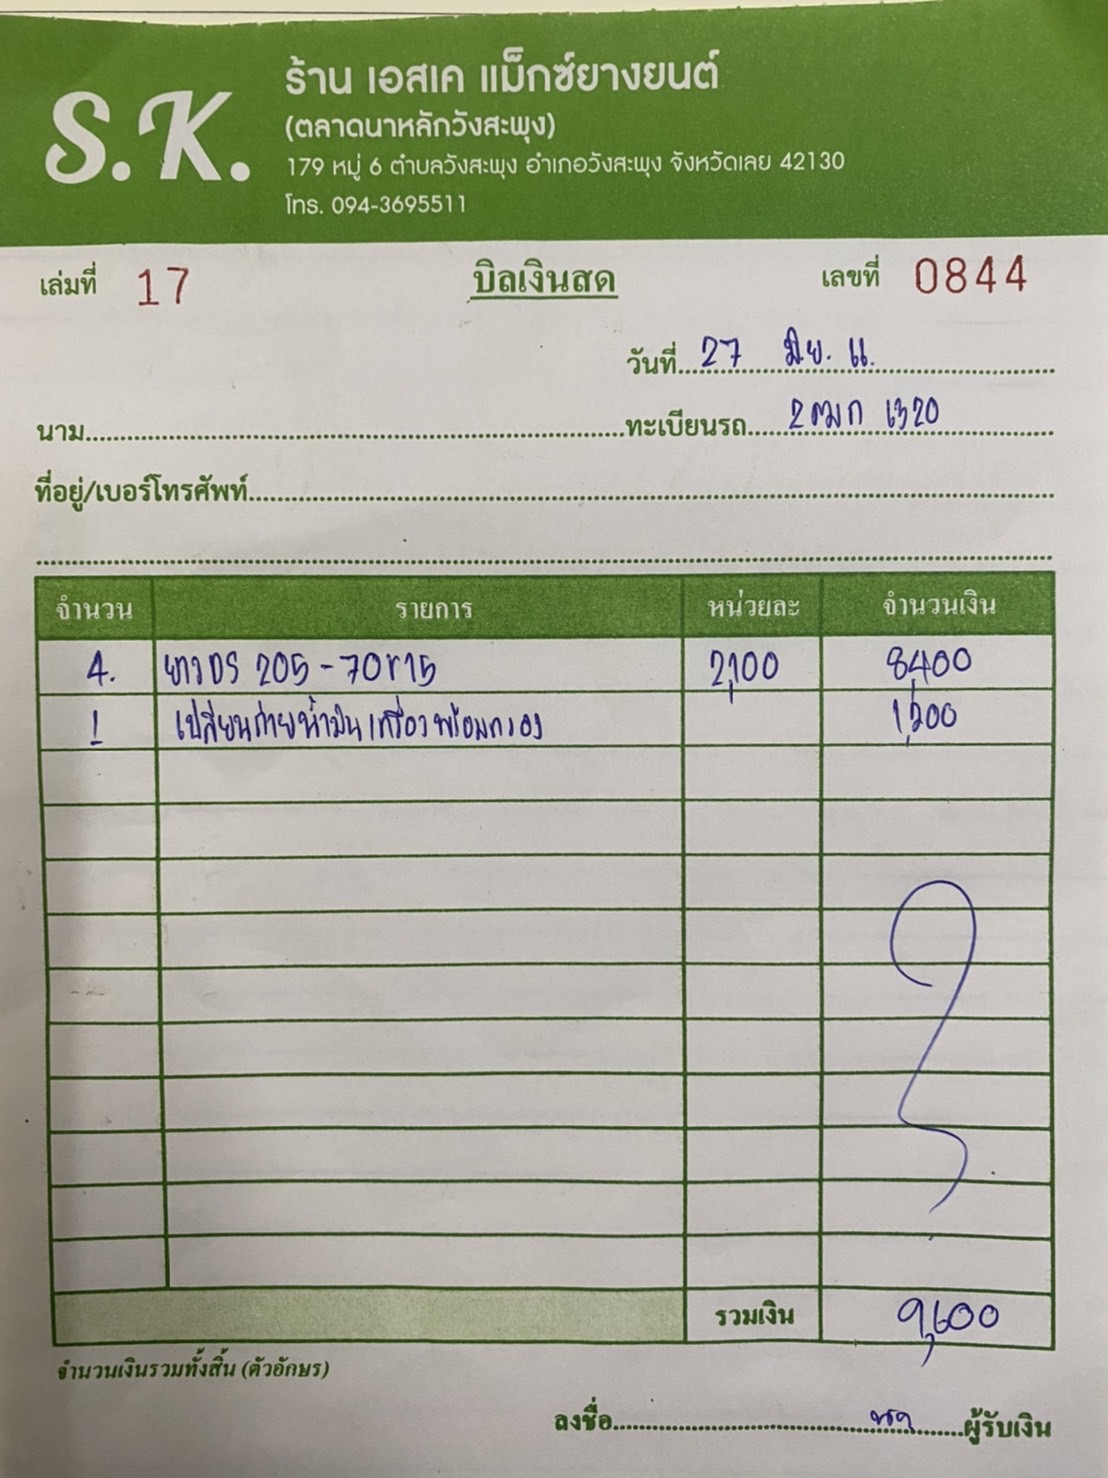 S.K.
ร้าน เอสเค แม็กซ์ยางยนต์
(ตลาดนาหลักวังสะพุง)
179 หมู่ 6 ตำบลวังสะพุง อำเภอวังสะพุง จังหวัดเลย 42130
โทร. 094-3695511
เล่มที่ 17 บิลเงินสด เลขที่ 0844
วันที่ 27 มิย.
นาม ทะเบียนรถ 1320
ที่อยู่/เบอร์โทรศัพท์
จำนวน รายการ หน่วยละ จำนวนเงิน
4. ยาง DS 205-70r15 2,100 8,400
1 เปลี่ยนถ่ายน้ำมันเครื่องพร้อมกรอง 1,200
รวมเงิน 9,600
จำนวนเงินรวมทั้งสิ้น (ตัวอักษร)
ลงชื่อ ผู้รับเงิน